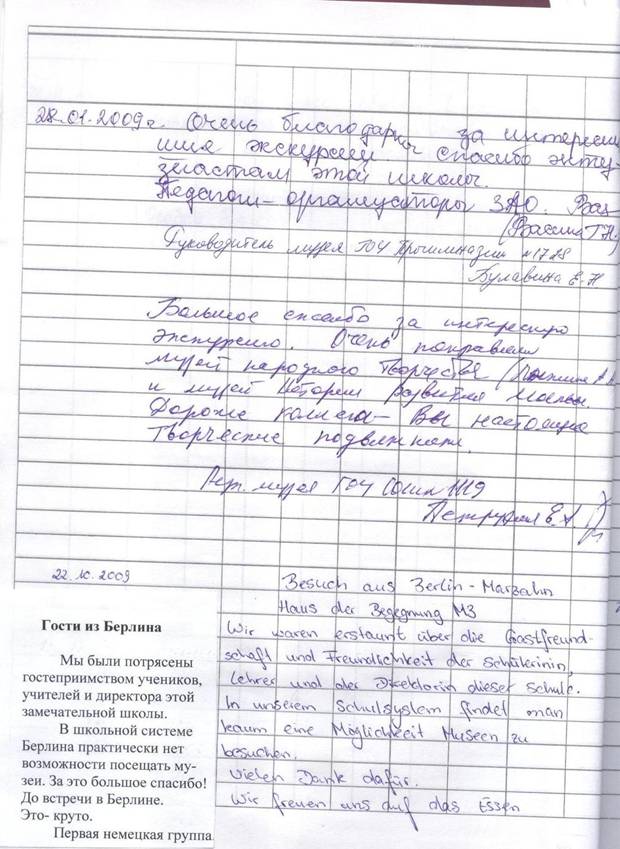 28.01.2009г. Очень благодарны за интересн
ые экскурсии. Спасибо энту-
зиастам этой школы.
Педагоги-организаторы ЗАО.
Руководитель музея ГОУ Прогимназии №1728
Булавина Е.Н
Большое спасибо за интересную
экскурсию. Очень понравился
музей народного творчества
и музей истории развития Москвы.
Дорогие коллеги - Вы настоящие
творческие подвижники.
Рук. музея ГОУ СОШ 1119
22.10.2009
Besuch aus Berlin-Marzahn
Haus der Begegnung M3
Wir waren erstaunt über die Gastfreund-
schaft und Freundlichkeit der Schülerinin,
Lehrer und der Direktorin dieser Schule.
In unserem Schulsystem findet man
kaum eine Möglichkeit Museen zu
besuchen.
Vielen Dank dafür.
Wir freuen uns auf das Essen
Гости из Берлина
Мы были потрясены
гостеприимством учеников,
учителей и директора этой
замечательной школы.
В школьной системе
Берлина практически нет
возможности посещать му-
зеи. За это большое спасибо!
До встречи в Берлине.
Это- круто.
Первая немецкая группа